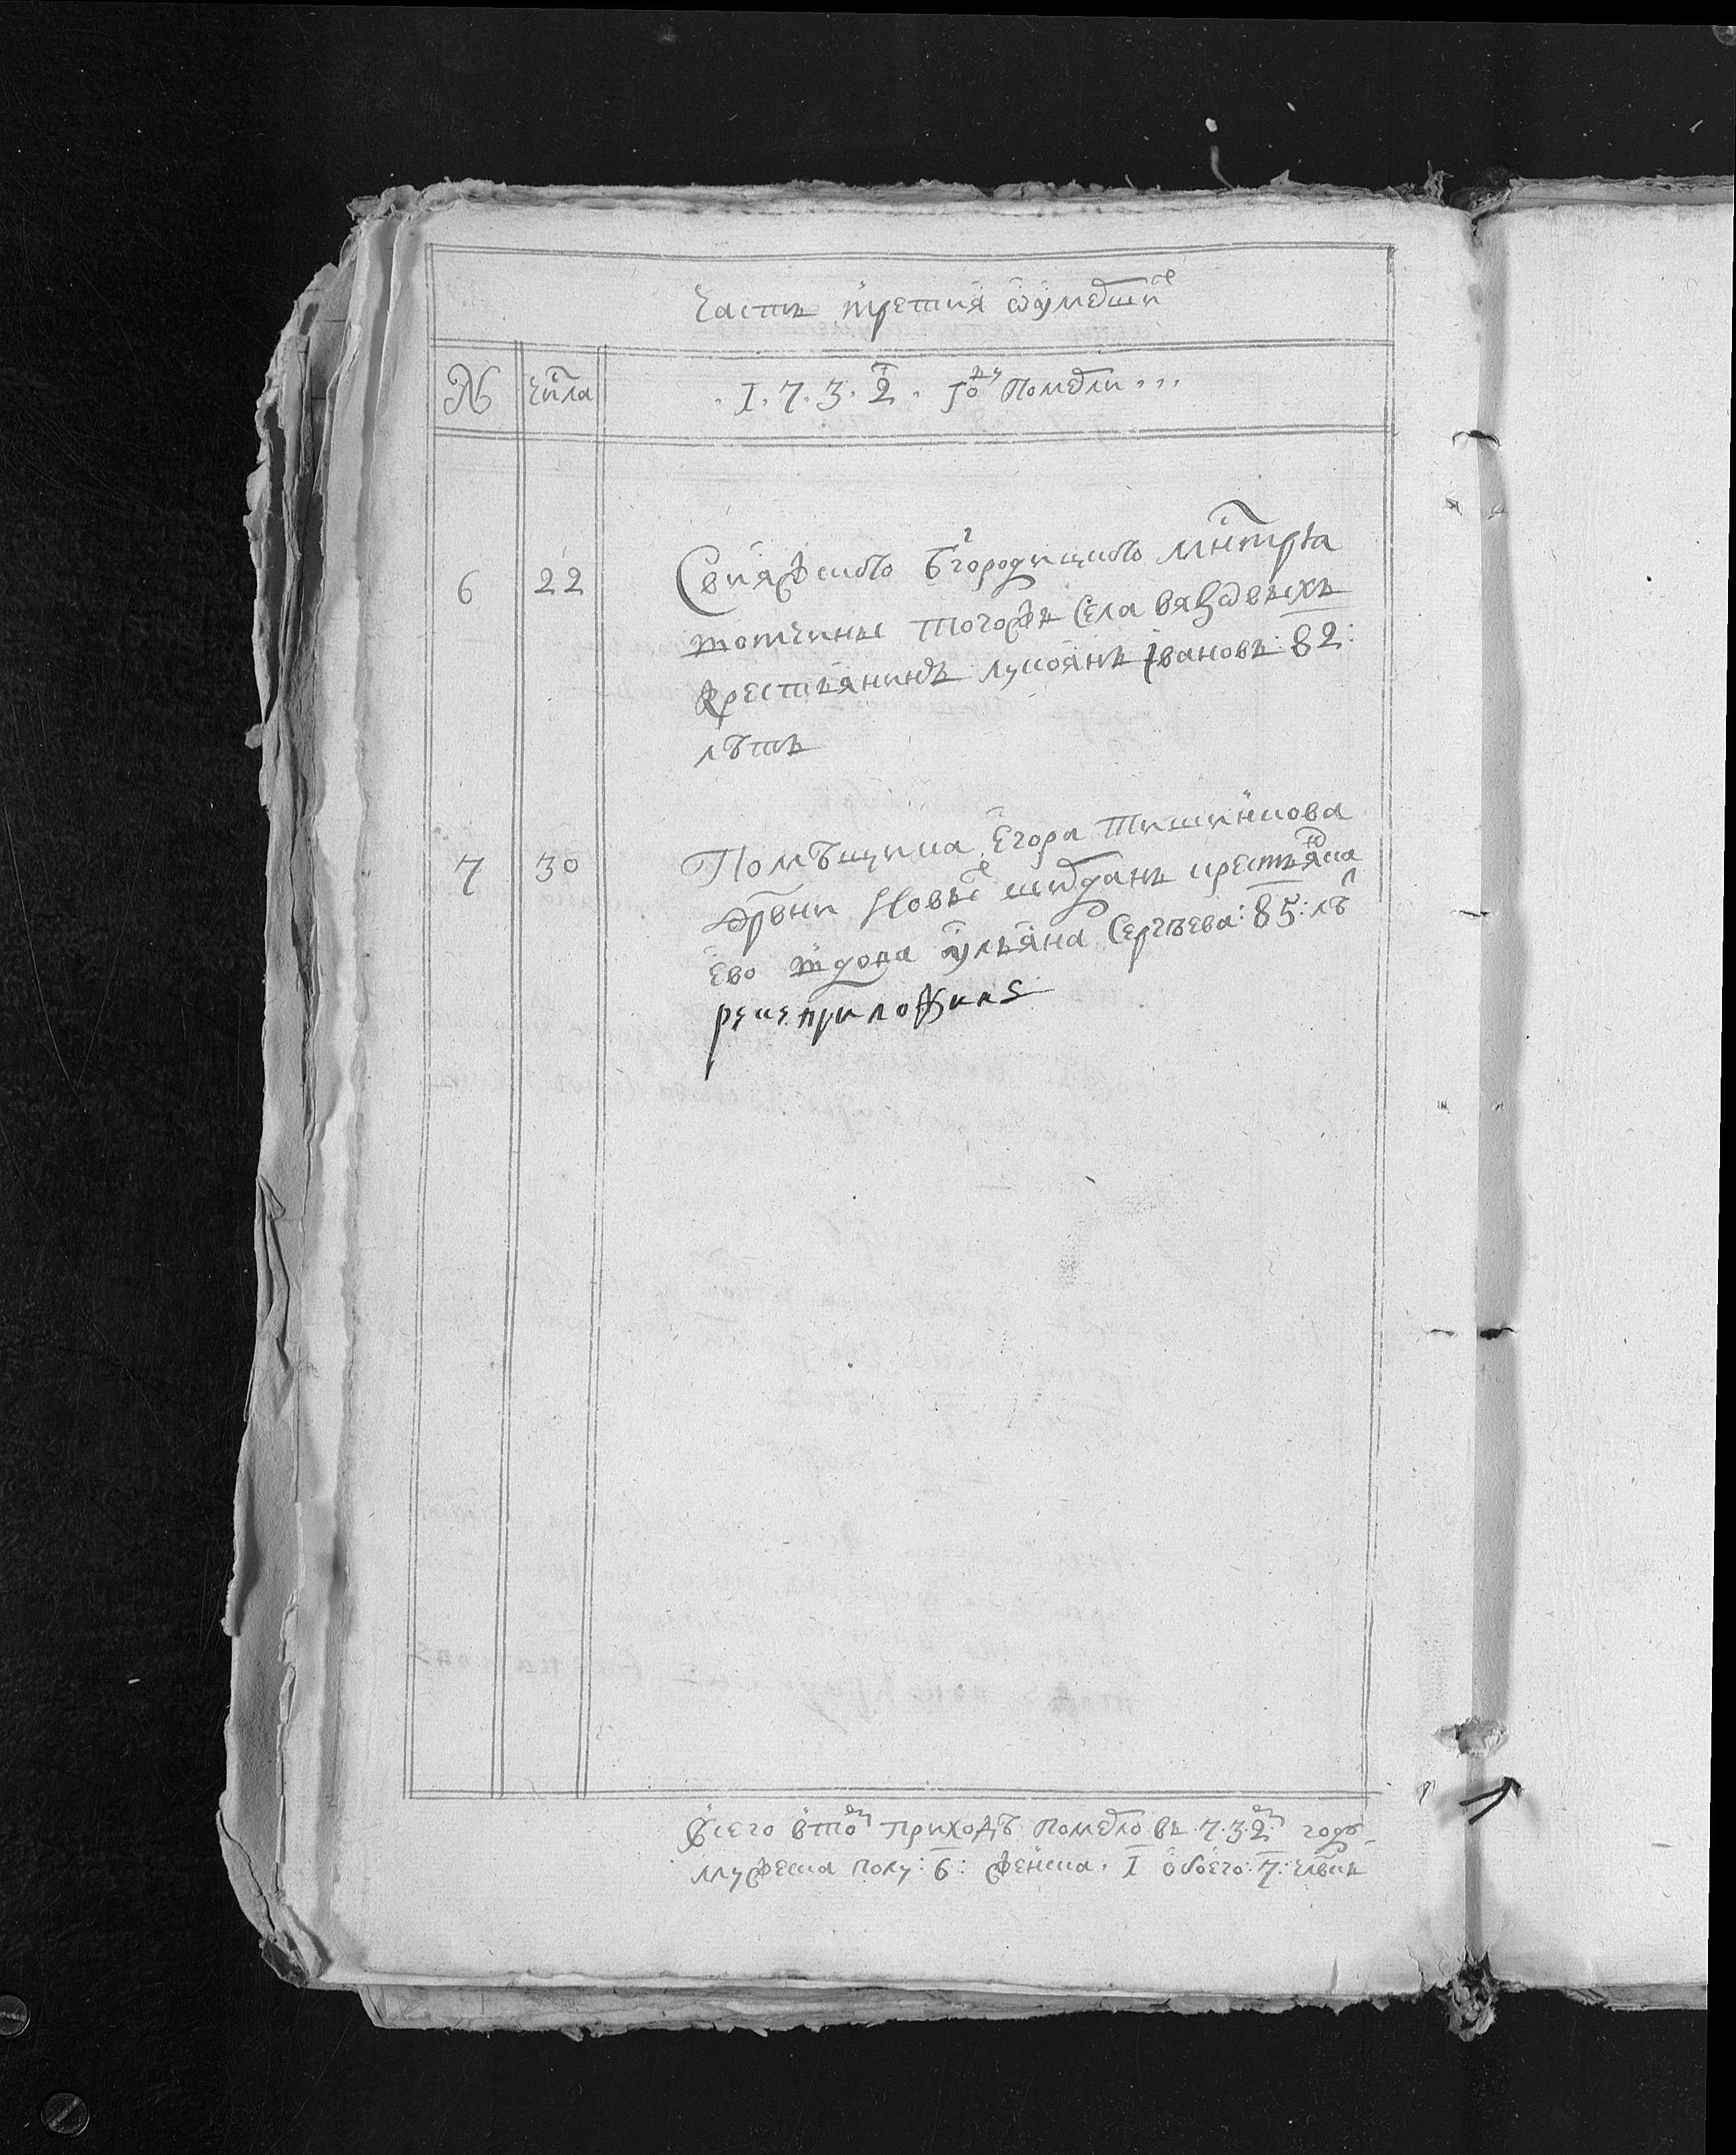 Часть третия ѡумершихъ
№ Числа .1.7.3.2. году Померли...
6 22 Свияжского Бгородицкого мнтря
вотчины тогожъ села вязовыхъ
крестьянинъ лукоянъ Iвановъ :82:
лѣтъ
7 30 Помѣщика Егора Тишинкова
дрвни Новые ширданъ крестьянка
ево вдова Ульяна Сергѣева :85: лѣ
руку приложилъ
Всего втомъ приходѣ померло въ .7.3.2. годѣ
мужеска полу :6: женска .1 обоего :7: члвкъ